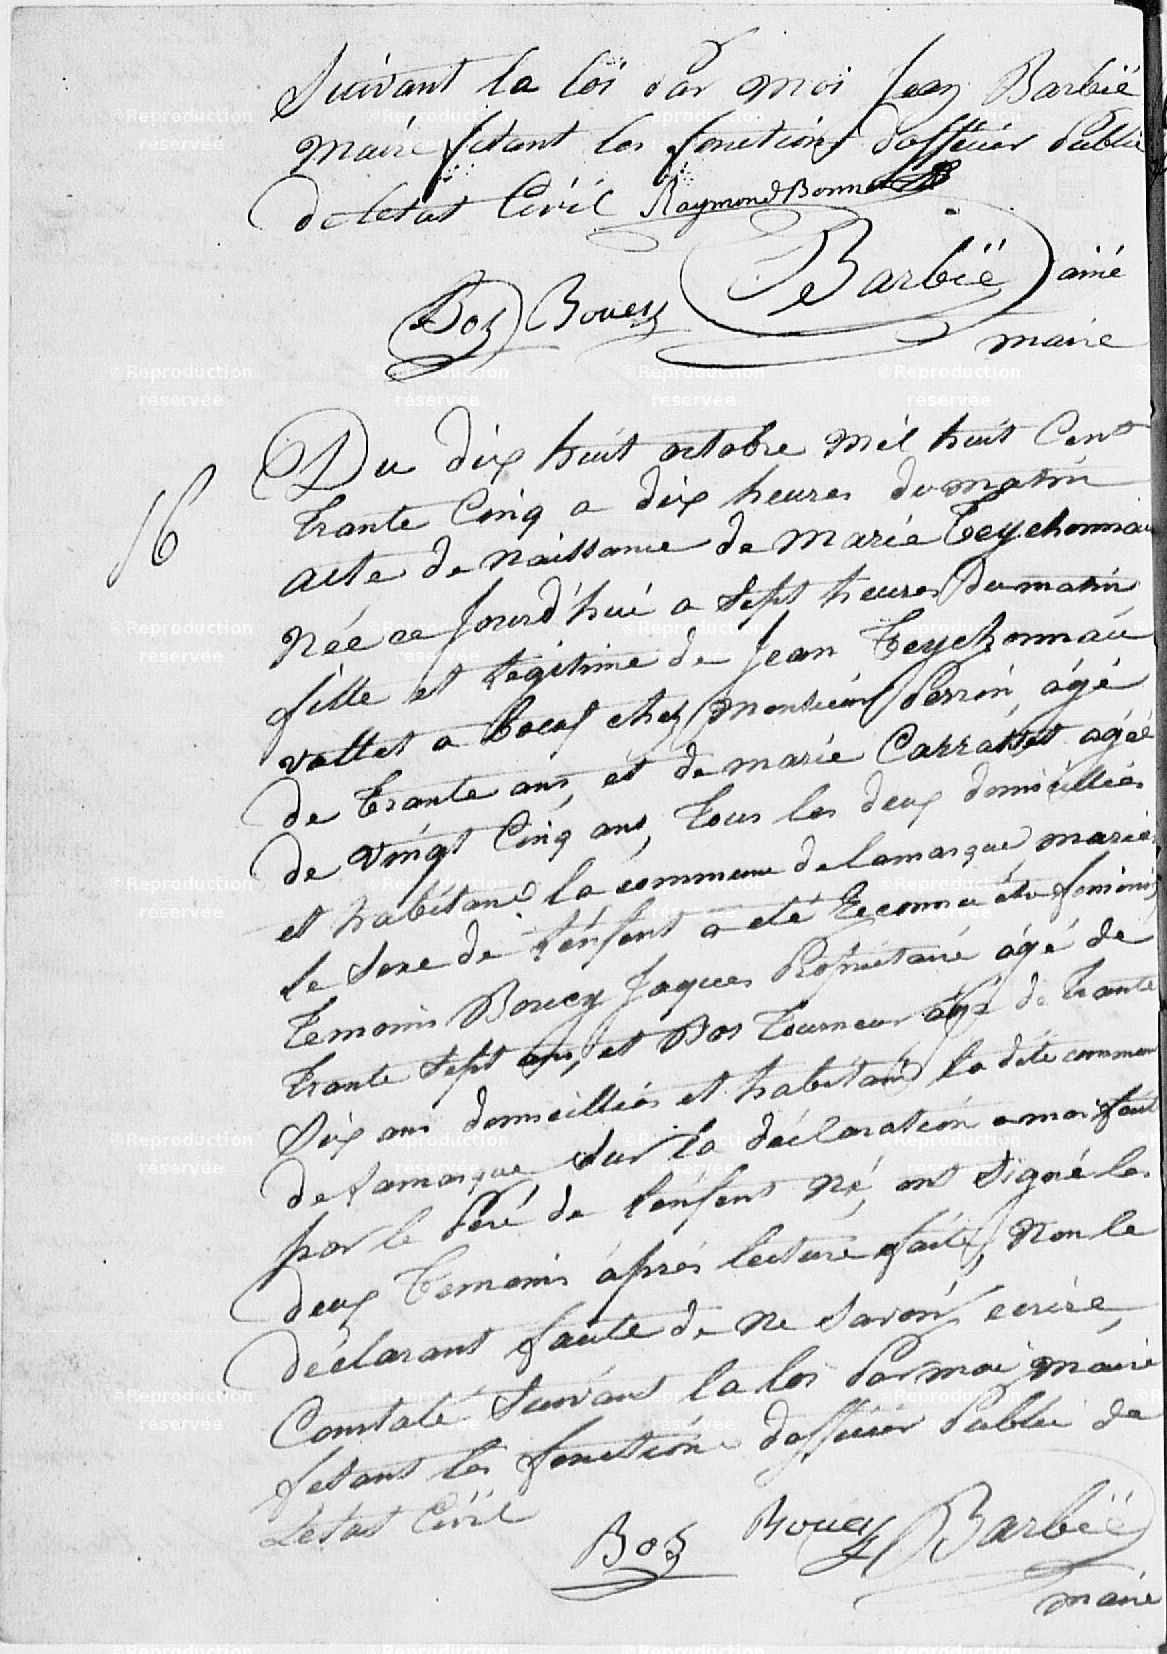 Suivant la loi par moi Jean Barbië
maire fesant les fonctions d'officier Public
de letat Civil Raymond Bonneau
Barbië ainé
Bos Bouey
maire
16
Du dix huit octobre mil huit Cent
trante Cinq a dix heures du matin
acte de naissance de marie Teychonnau
Née ce Jourd'hui a sept heures du matin
fille et légitime de Jean Teychonnau
vallet a boeuf chez monsieur Perrin, agé
de trante ans, et de marie Carrastet agée
de vingt Cinq ans, tous les deux domicilliés
et habitant la commune de lamarque mariés
le sexe de l'énfant a eté Reconnu étre feminin
temoins Bouey Jaques Propriétaire agé de
trante sept ans, et Bos tourneur agé de trante
Six ans domicilliés et habitant la dite commune
de Lamarque sur la déclaration a moi faite
par le Peré de l'énfant Né, ont signé les
deux temoins áprés lecture faite, Non le
déclarant faute de ne savoir ecrire,
Constaté Suivant la loi Par moi maire
fesant les fonctions dofficier Public de
Letat Civil
Bos Bouey Barbië
maire